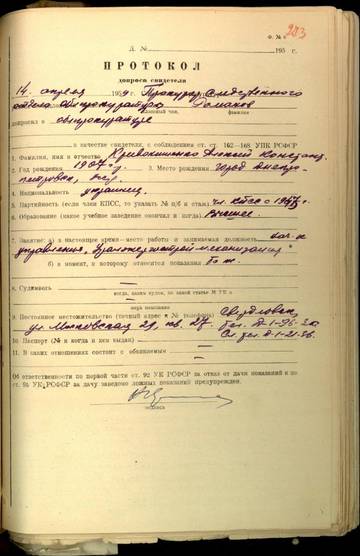 Ф. № 6
203
Д. №
195 г.
ПРОТОКОЛ
допроса свидетеля
14 апреля 1959 г. Прокурор следственного
отдела облпрокуратуры Романов
фамилия
допросил в облпрокуратуре
в качестве свидетеля, с соблюдением ст. ст. 162—168 УПК РСФСР
1. Фамилия, имя и отчество Кривонищенко Алексей Констант.
2. Год рождения 1907 г. 3. Место рождения Изюм Днепро-
петровск,
4. Национальность украинец
5. Партийность (если член КПСС, то указать № п/б и стаж) чл. КПСС с
6. Образование (какое учебное заведение окончил и когда) Высшее
7. Занятие: а) в настоящее время—место работы и занимаемая должность нач-к
управления "Уралэнергостроймеханизация"
б) в момент, к которому относятся показания То же
8. Судимость
когда, каким судом, по какой статье УК и
мера наказания
9. Постоянное местожительство (точный адрес и № телефона) Свердловск,
ул. Московская 29, кв. 27. тел. Д-1-95-20
10. Паспорт (№ и когда и кем выдан) Сл. тел. Д-1-21-56.
11. В каких отношениях состоит с обвиняемым
Об ответственности по первой части ст. 92 УК РСФСР за отказ от дачи показаний и по
ст. 95 УК РСФСР за дачу заведомо ложных показаний предупрежден.
подпись